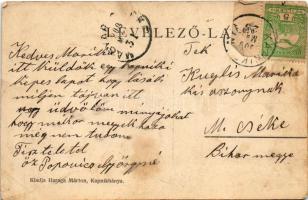 LEVELEZŐ-LAP
Kedves Mariska
itt küldök egy kapniki
képes lapot hogy lásák
milyen tájvan itt
üdvözlöm mindnyájokat
hogy mikor megyek haza
még nem tudom
Tisztelettel
öz Popovics Györgyné
Tek
Kuglis Mariska
kisasszonynak
M. Cséke
Bihar megye
Kiadja Haragá Márton, Kapnikbánya.